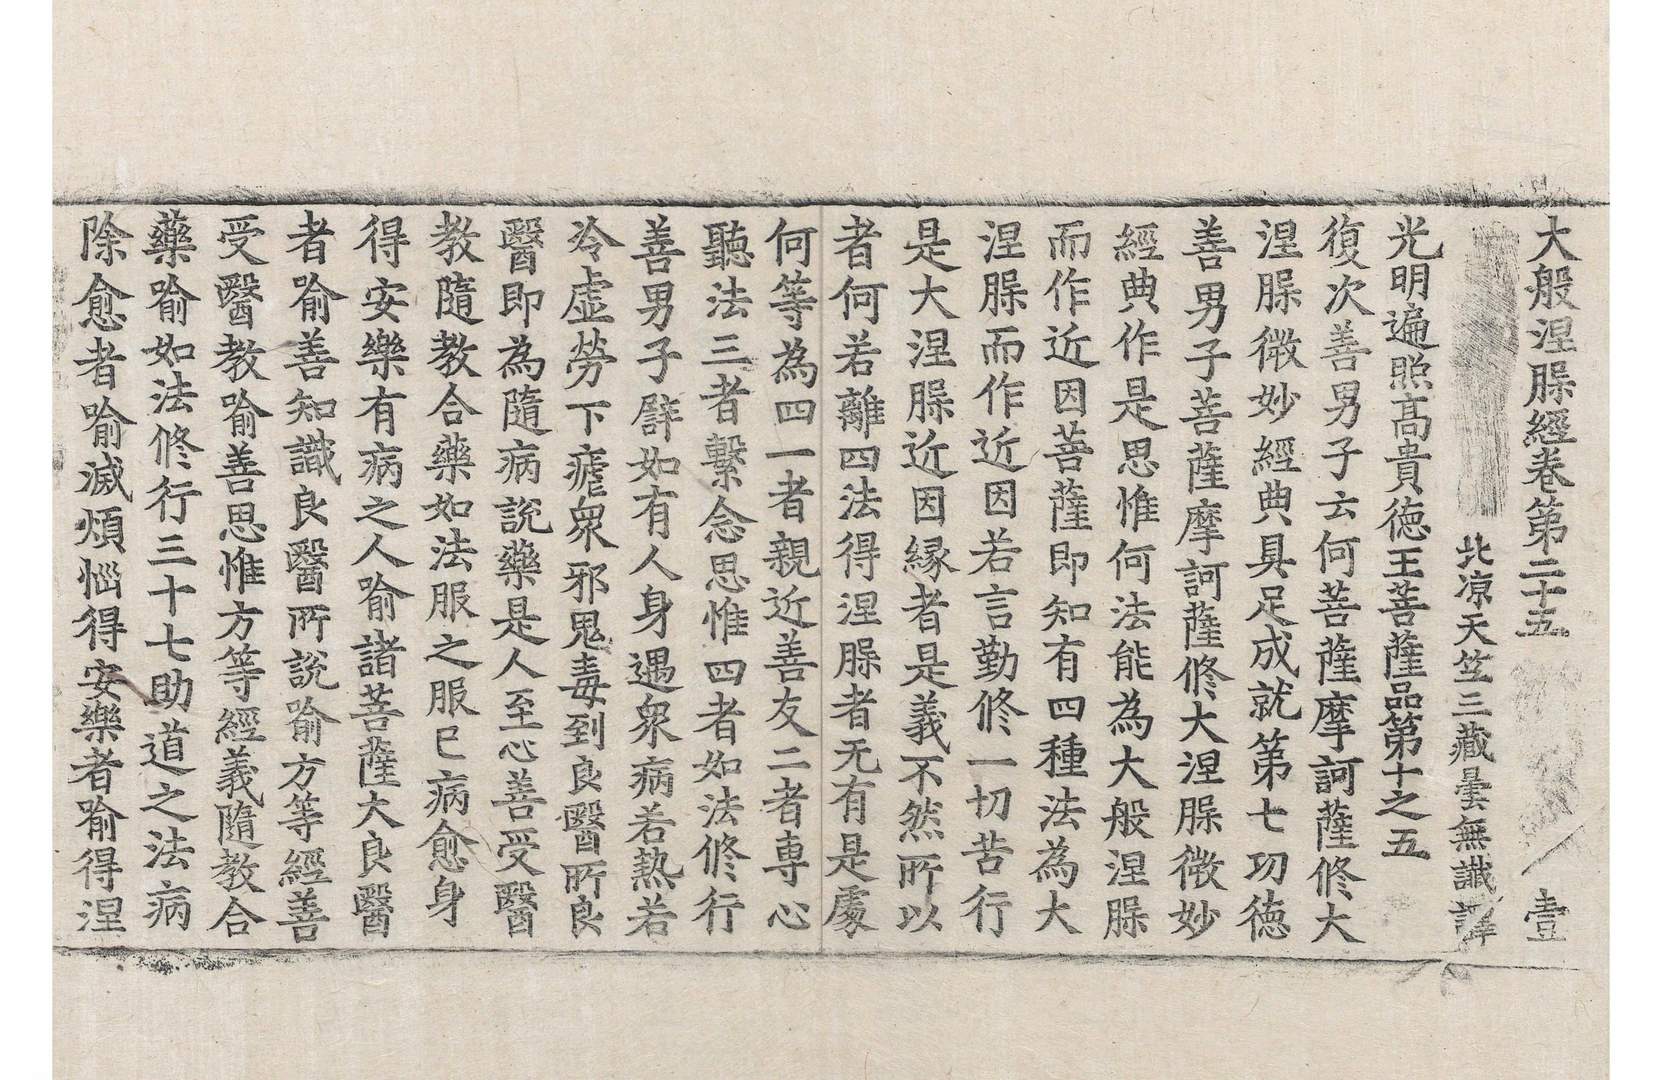 大般涅脲經卷第二十五　壹
北凉天竺三藏曇無讖譯
光明遍照髙貴徳王菩薩品第十之五
復次善男子云何菩薩摩訶薩修大
涅脲微妙經典具足成就第七功徳
善男子菩薩摩訶薩修大涅脲微妙
經典作是思惟何法能為大般涅脲
而作近因菩薩即知有四種法為大
涅脲而作近因若言勤修一切苦行
是大涅脲近因縁者是義不然所以
者何若離四法得涅脲者无有是處
何等為四一者親近善友二者専心
聽法三者繫念思惟四者如法修行
善男子譬如有人身遇衆病若熱若
冷虚勞下瘧衆邪鬼毒到良醫所良
醫即為隨病説藥是人至心善受醫
教隨教合藥如法服之服已病愈身
得安樂有病之人喻諸菩薩大良醫
者喻善知識良醫所説喻方等經善
受醫教喻善思惟方等經義隨教合
藥喻如法修行三十七助道之法病
除愈者喻滅煩惱得安樂者喻得涅